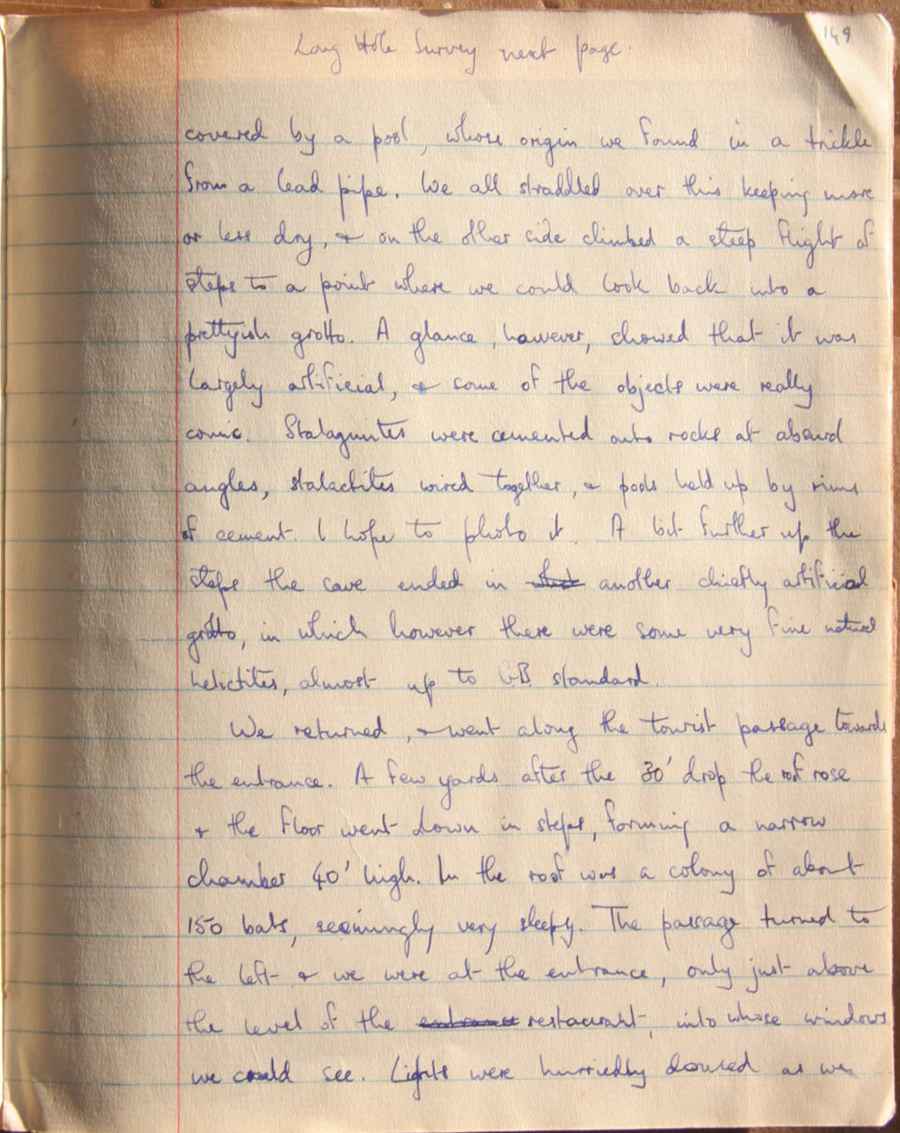 149
Long Hole Survey next page.
covered by a pool, whose origin we found in a trickle
from a lead pipe. We all straddled over this keeping more
or less dry, & on the other side climbed a steep flight of
steps to a point where we could look back into a
prettyish grotto. A glance, however, showed that it was
largely artificial, & some of the objects were really
comic. Stalagmites were cemented onto rocks at absurd
angles, stalactites wired together, & pools held up by rims
of cement. I hope to photo it. A bit further up the
steps the cave ended in another chiefly artificial
grotto, in which however there were some very fine natural
helictites, almost up to GB standard.
We returned, & went along the tourist passage towards
the entrance. A few yards after the 30' drop the roof rose
& the floor went down in steps, forming a narrow
chamber 40' high. In the roof was a colony of about
150 bats, seemingly very sleepy. The passage turned to
the left & we were at the entrance, only just above
the level of the entrance restaurant, into whose windows
we could see. Lights were hurriedly doused as we